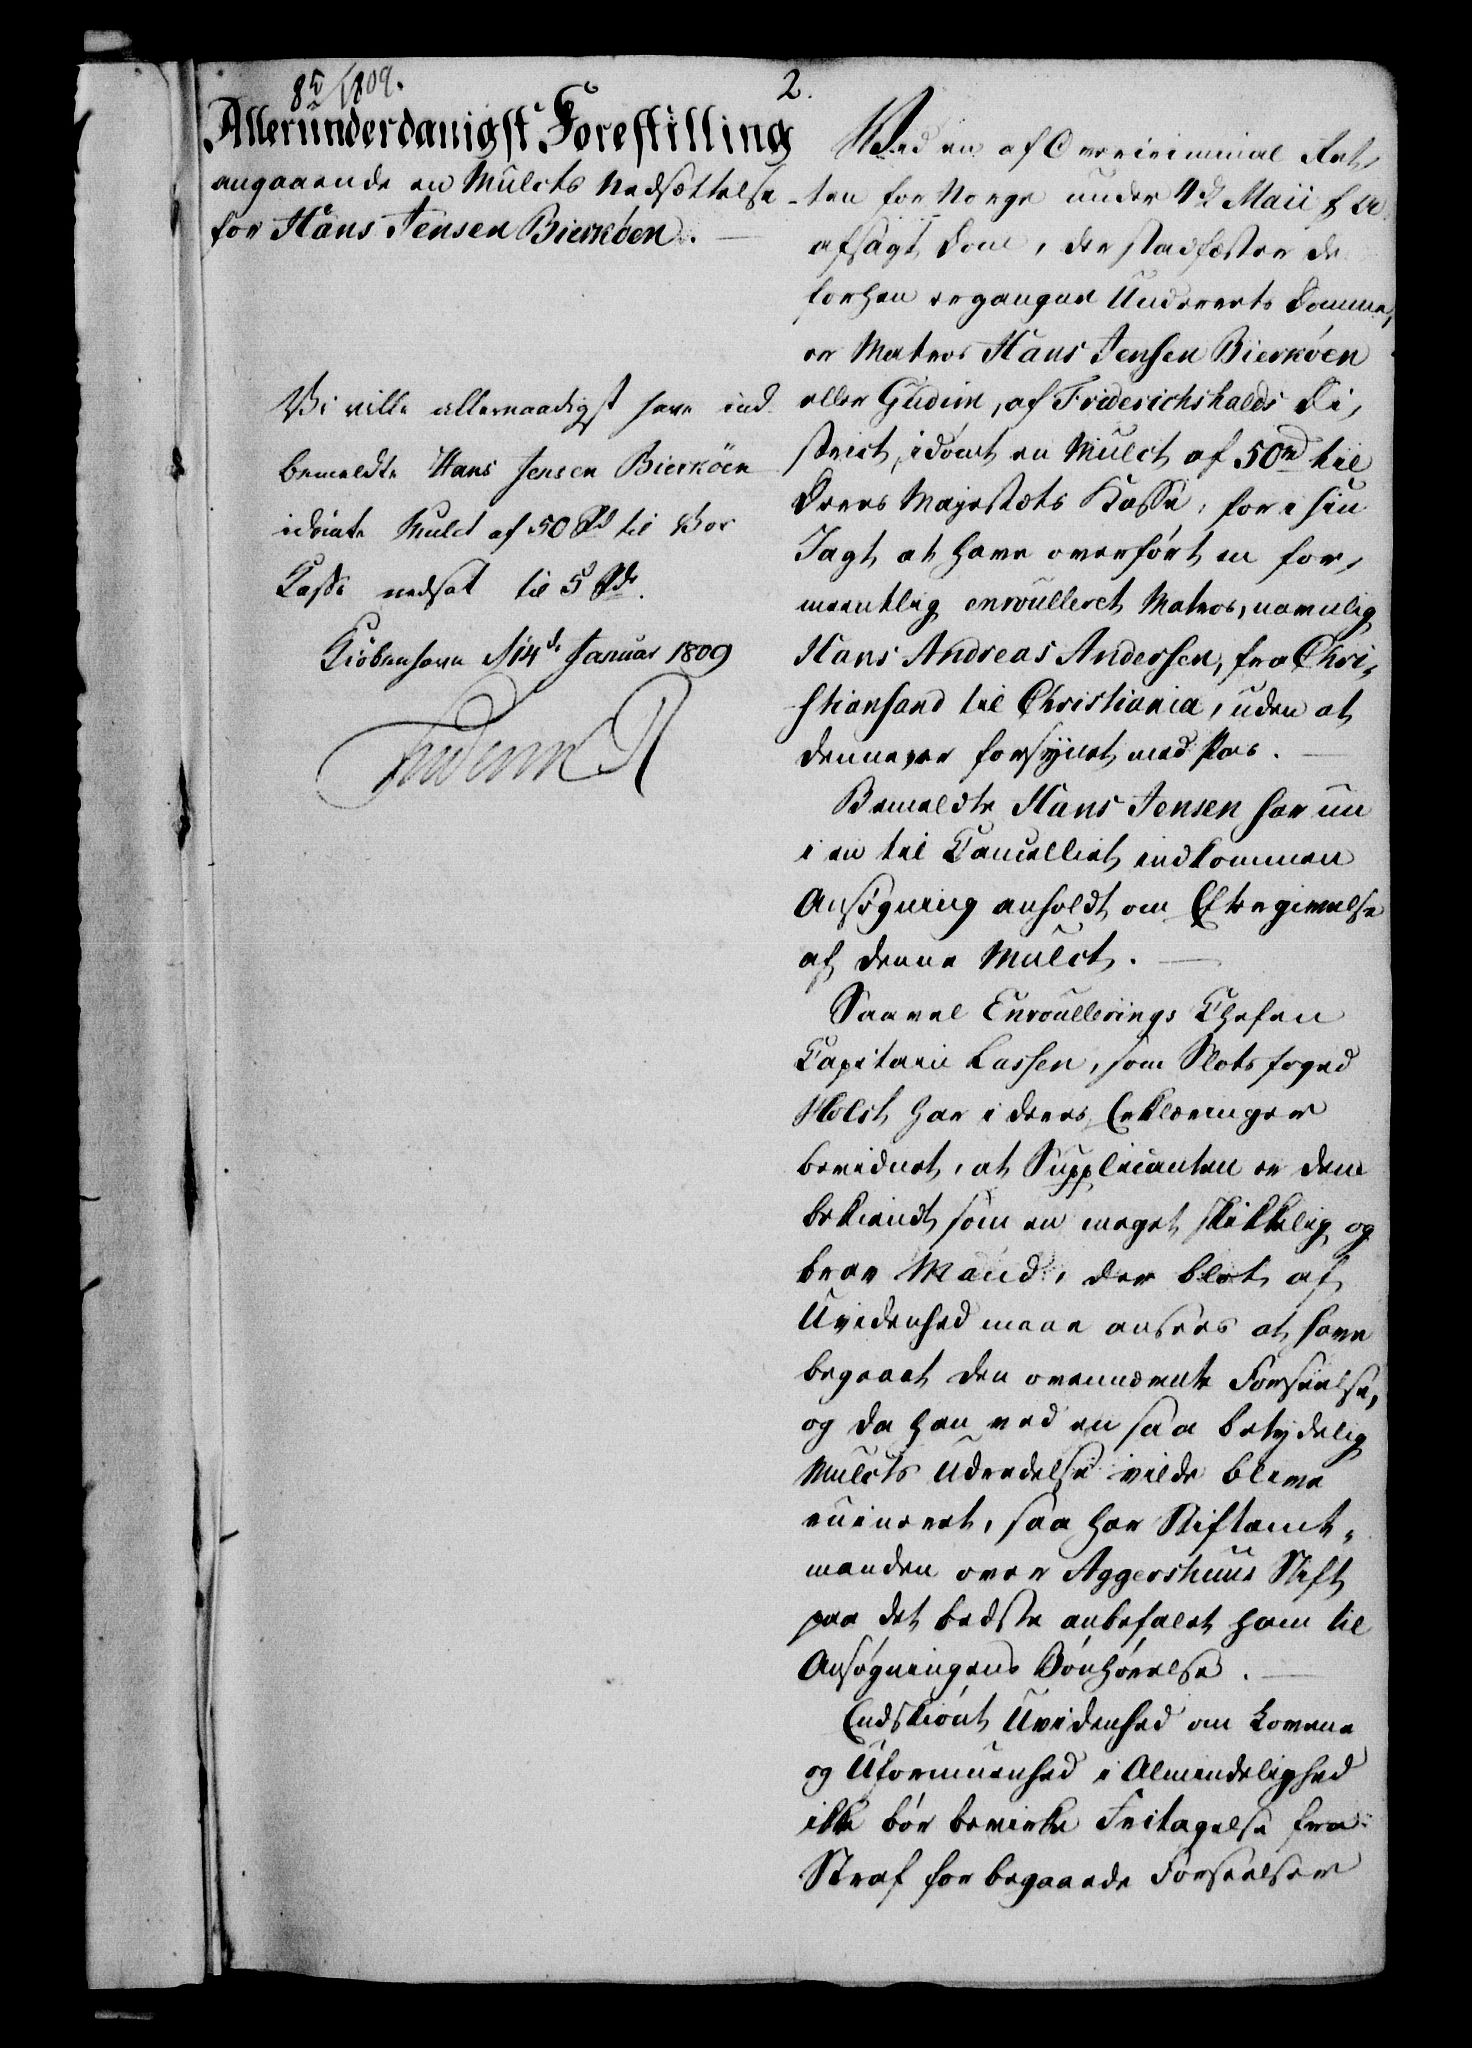 8 5/1 1809.
2.
Allerunderdanigst Forestilling
angaaende en Mulcts Nedsættelse
for Hans Jensen Bierköen.
Vi ville allernaadigst have ind
bemeldte Hans Jensen Bierköen
idømte Mulct af 50 Rd til Vor
Casse nedsat til 5 Rdr.
Kiöbenhavn d 14de Januar 1809
Frederik R
Ved en af Overcriminal Ret,
ten for Norge under 4d Maii f. A.
afsagt Dom, der stadfæster de
forhen ergangne Underrets Domme,
er Matros Hans Jensen Bierköen
eller Gudim, af Friderichshalds Di,
strict, idömt en Mulct af 50 rd til
Deres Majestæts Kasse, for i sin
Jagt at have overfört en for,
meentlig enroulleret Matros, navnlig
Hans Andreas Andersen, fra Chri,
stiansand til Christiania, uden at
denne var forsÿnet med Pas.
Bemeldte Hans Jensen har nu
i en til Cancelliet indkommen
Ansögning anholdt om Eftergivelse
af denne Mulct.
Saavel Enroullerings Chefen
Capitain Lassen, som Slotsfoged
Holst har i deres Erklæringer
bevidnet, at Supplicanten er dem
bekiendt som en meget skikkelig og
brav Mand, der blot af
Uvidenhed maae ansees at have
begaaet den ovennævnte Forseelse,
og da han ved en saa betydelig
Mulcts Udredelse vilde blive
ruineret, saa har Stiftamt,
manden over Aggershuus Stift
paa det bedste anbefalet ham til
Ansögningens Bönhörelse.
Endskiönt Uvidenhed om Lovene
og Uformuenhed i Almindelighed
ikke bör bevirke Fritagelse fra
Straf for begaaede Forseelser